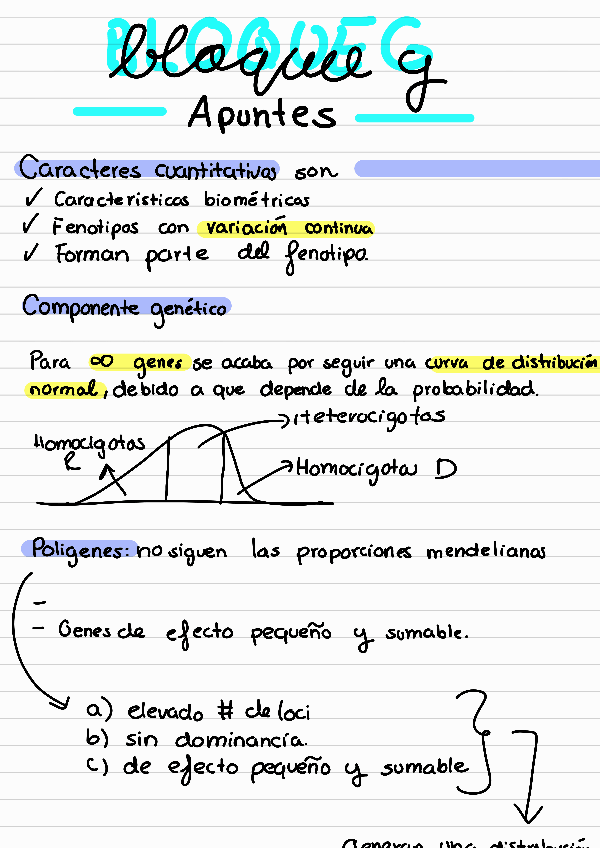 BLOQUE G
bloque g
Apuntes
Caracteres cuantitativos son
✓ Características biométricas
✓ Fenotipos con variación continua
✓ Forman parte del fenotipo.
Componente genético
Para ∞ genes se acaba por seguir una curva de distribución
normal, debido a que depende de la probabilidad.
Heterocigotos
Homocigotos
R
Homocigotas D
Poligenes: no siguen las proporciones mendelianas
-
- Genes de efecto pequeño y sumable.
a) elevado # de loci
b) sin dominancia.
c) de efecto pequeño y sumable
Generan una distribución